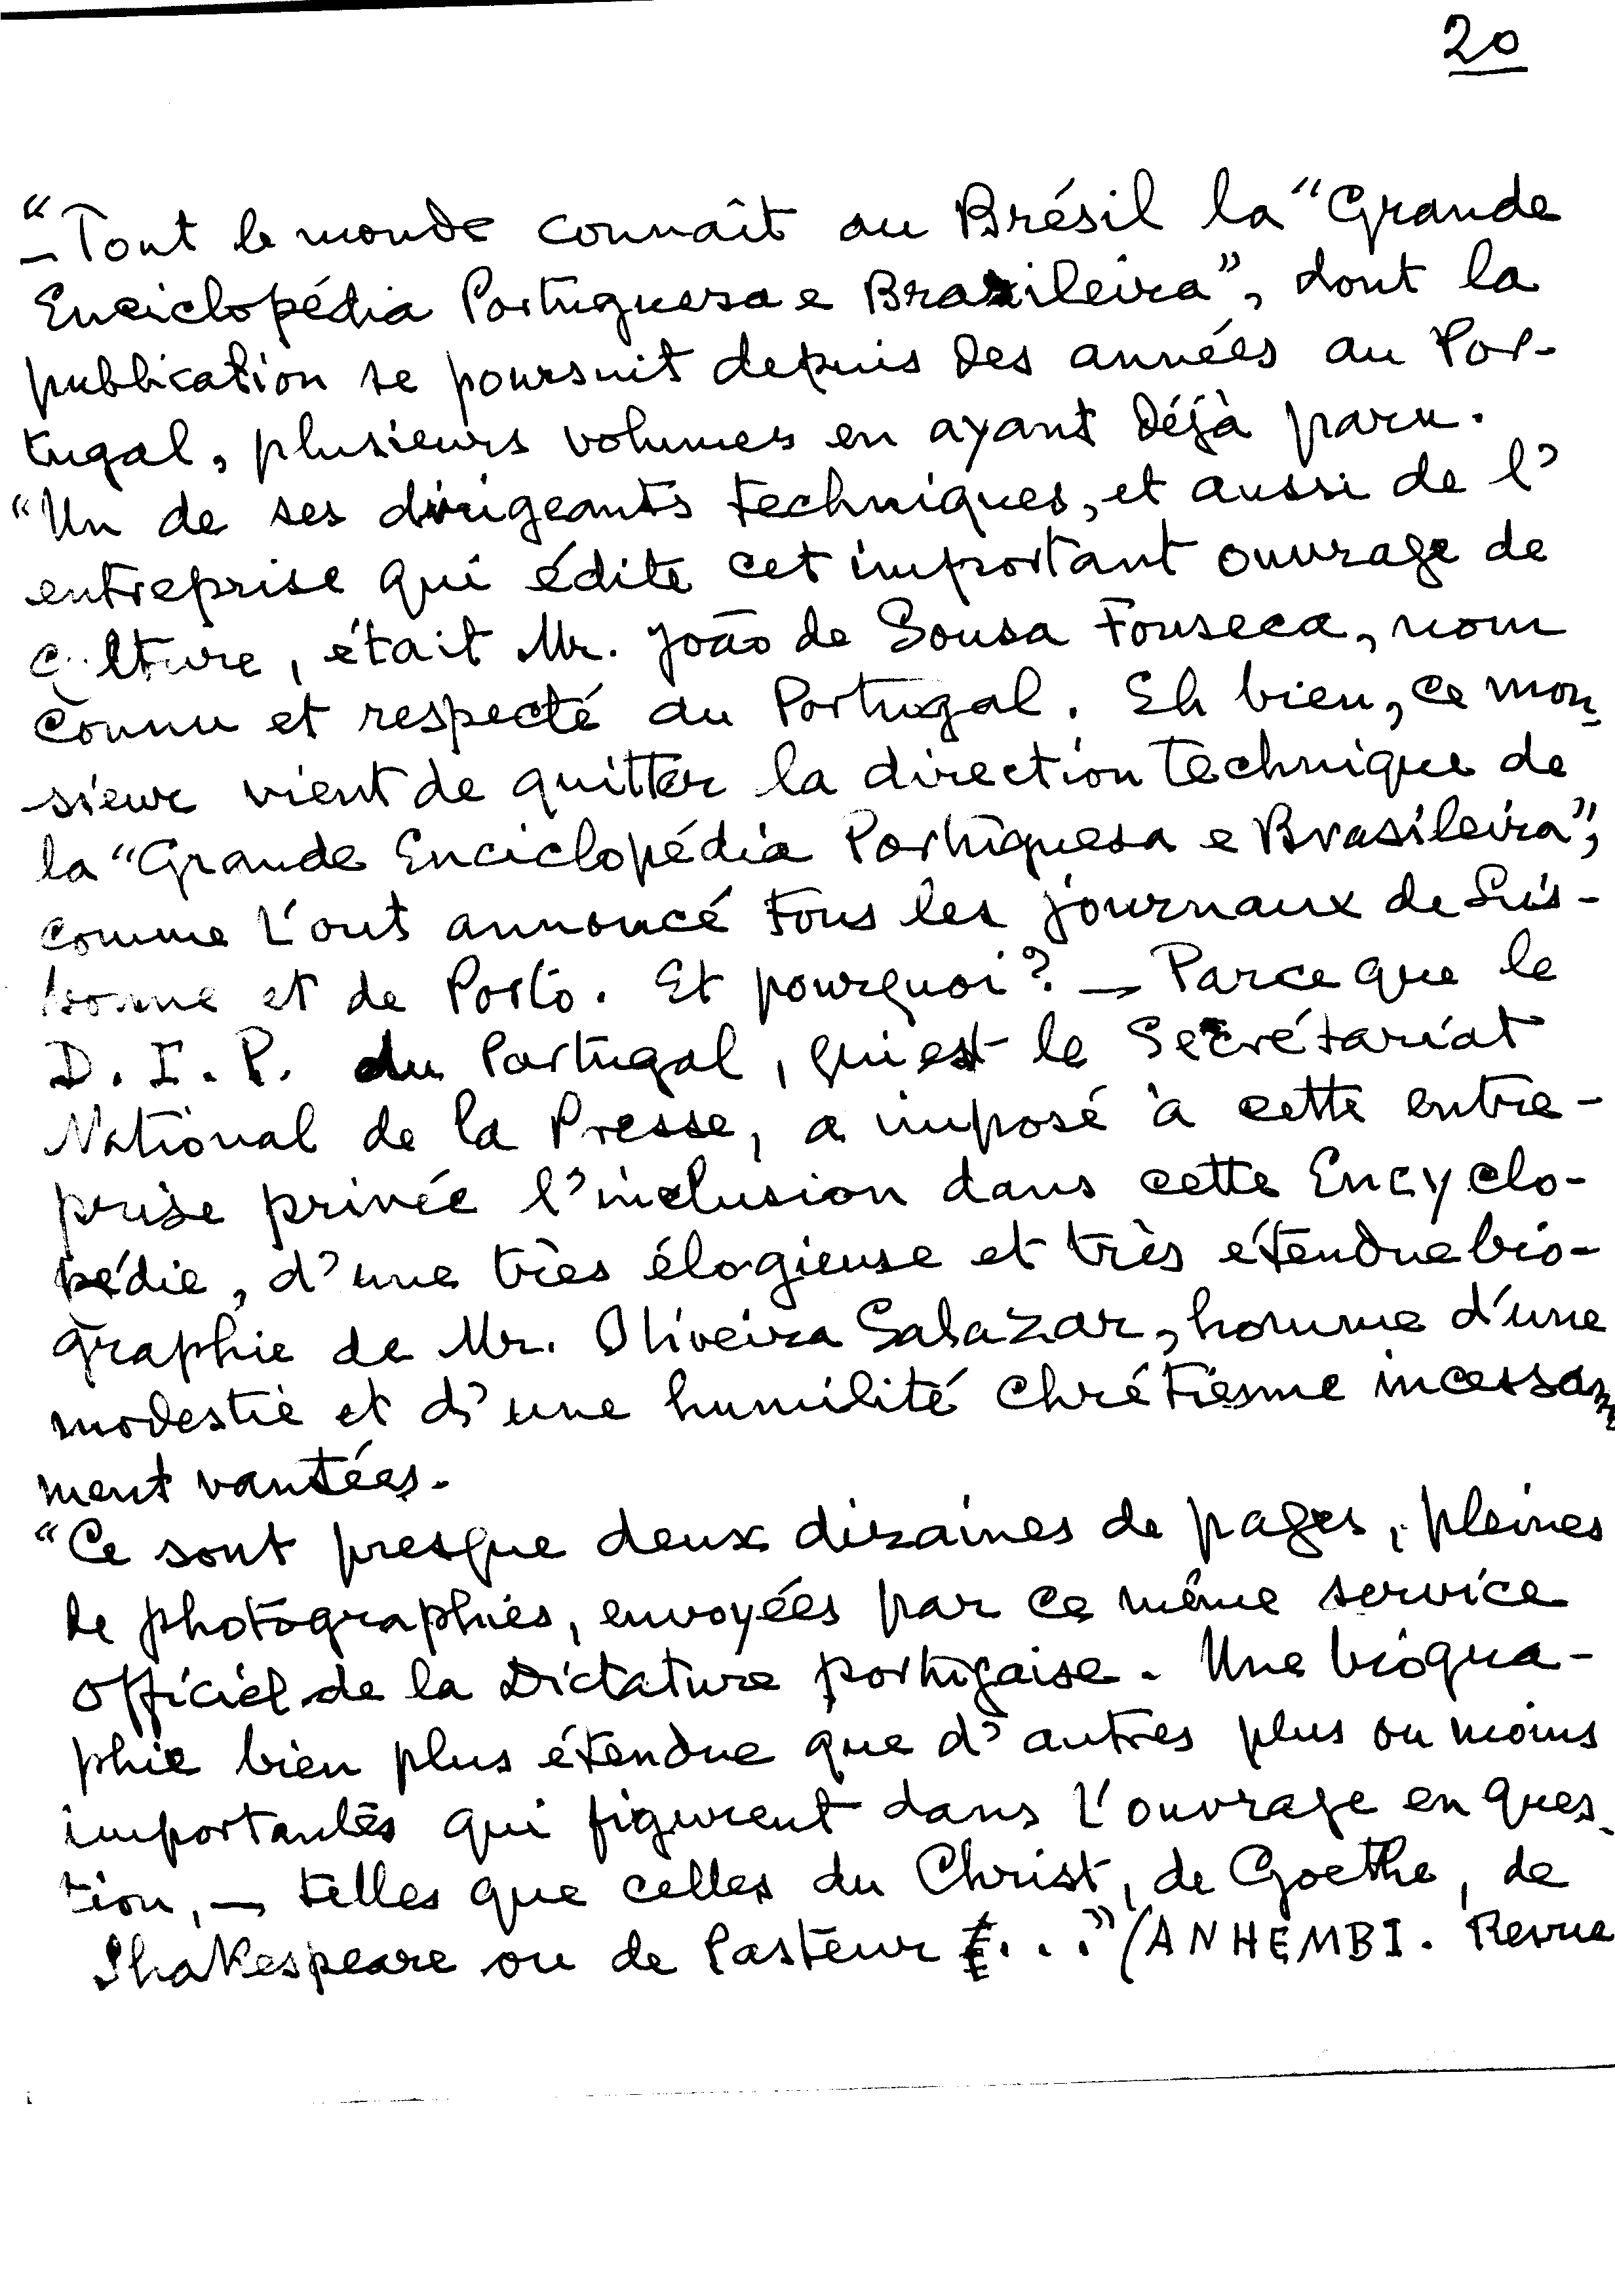 20
"— Tout le monde connaît au Brésil la "Grande
Enciclopédia Portuguesa e Brasileira", dont la
publication se poursuit depuis des années au Por-
tugal, plusieurs volumes en ayant déjà paru.
"Un de ses dirigeants techniques, et aussi de l'
entreprise qui édite cet important ouvrage de
culture, était Mr. João de Sousa Fonseca, nom
connu et respecté au Portugal. Eh bien, ce mon-
sieur vient de quitter la direction technique de
la "Grande Enciclopédia Portuguesa e Brasileira",
comme l'ont annoncé tous les journaux de Lis-
bonne et de Porto. Et pourquoi? — Parce que le
D. I. P. du Portugal, qui est le Secrétariat
National de la Presse, a imposé à cette entre-
prise privée l'inclusion dans cette Encyclo-
pédie, d'une très élogieuse et très étendue bio-
graphie de Mr. Oliveira Salazar, homme d'une
modestie et d'une humilité chrétienne incessam
ment vantées.
"Ce sont presque deux dizaines de pages, pleines
de photographies, envoyées par ce même service
officiel de la Dictature portugaise. Une biogra-
phie bien plus étendue que d'autres plus ou moins
importantes qui figurent dans l'ouvrage en ques-
tion, — telles que celles du Christ, de Goethe, de
Shakespeare ou de Pasteur ..." (ANHEMBI. Revue